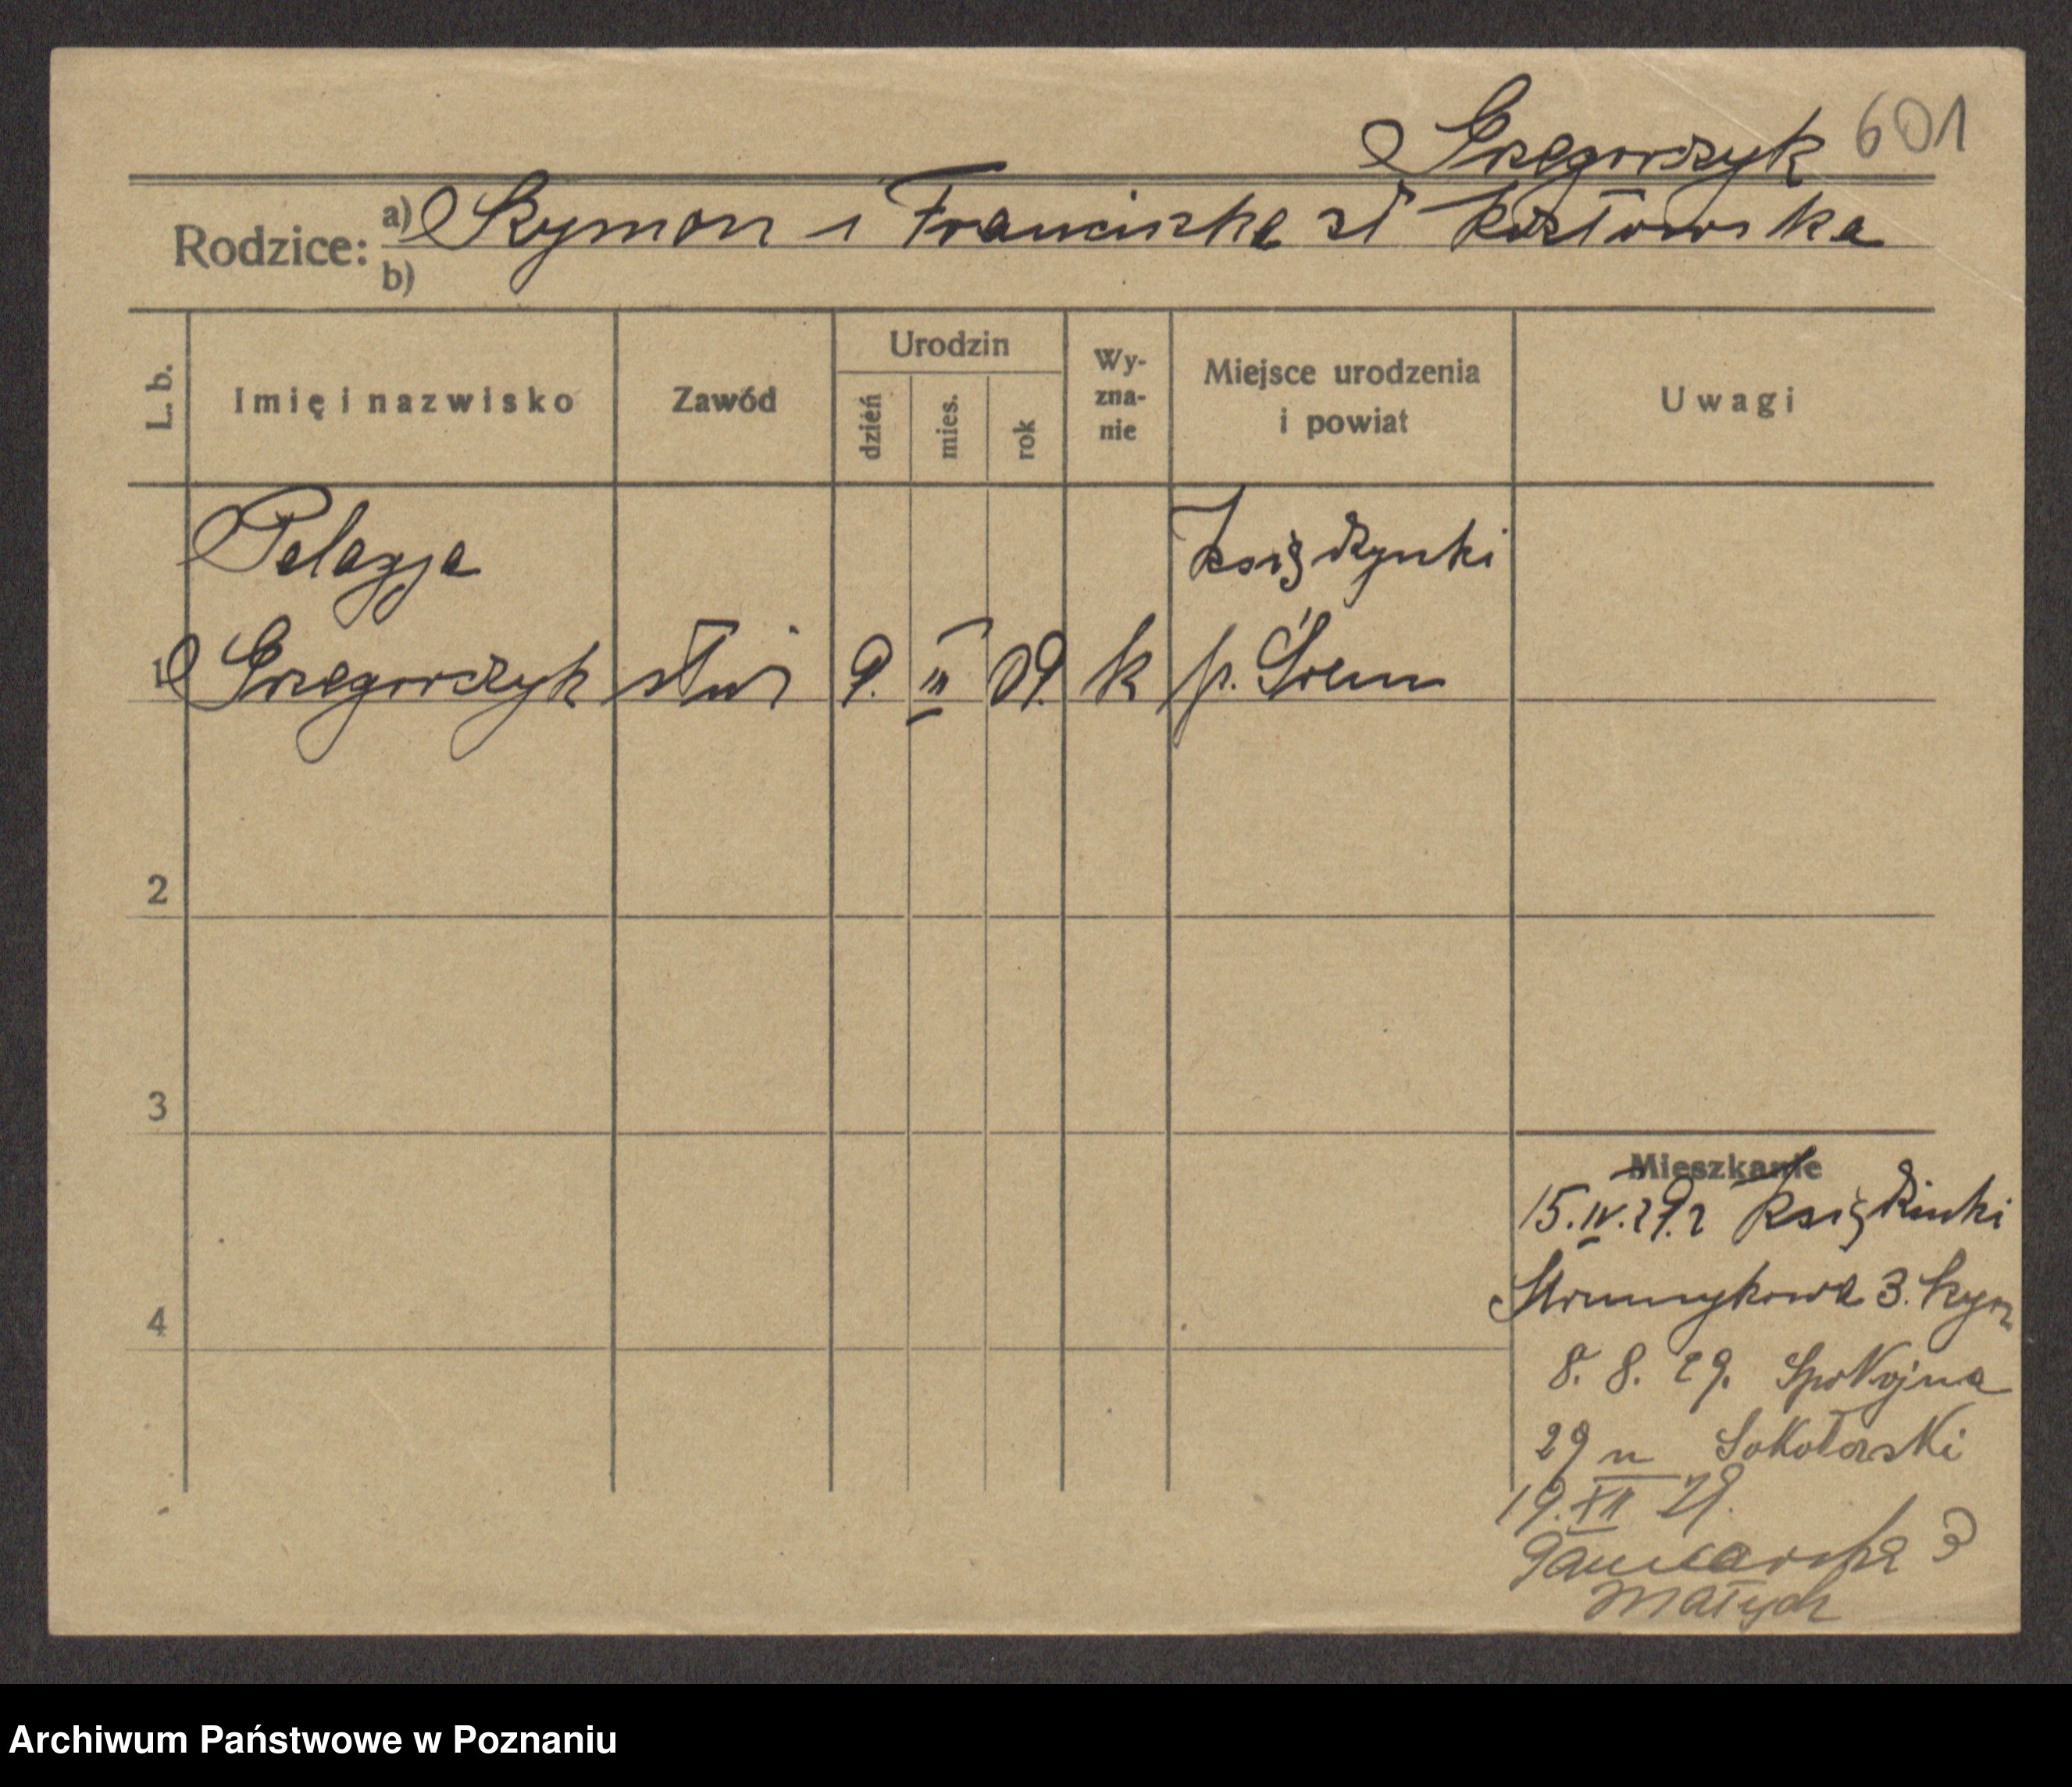 Grzegorczyk 601
Rodzice: a) Szymon i Franciszka zd Kozłowska
b)
L. b.
Imię i nazwisko
Zawód
Urodzin
dzień
mies.
rok
Wy-
zna-
nie
Miejsce urodzenia
i powiat
Uwagi
Pelagja
Książynki
1 Grzegorczyk służ 9. III 09. k p. Śrem
2
3
4
Mieszkanie
15.IV.29. z
Strumykowa 3.
8. 8. 29. Spokojna
29 u Sokołorski
19. XII 29.
Garncarska 3
Małych
Archiwum Państwowe w Poznaniu